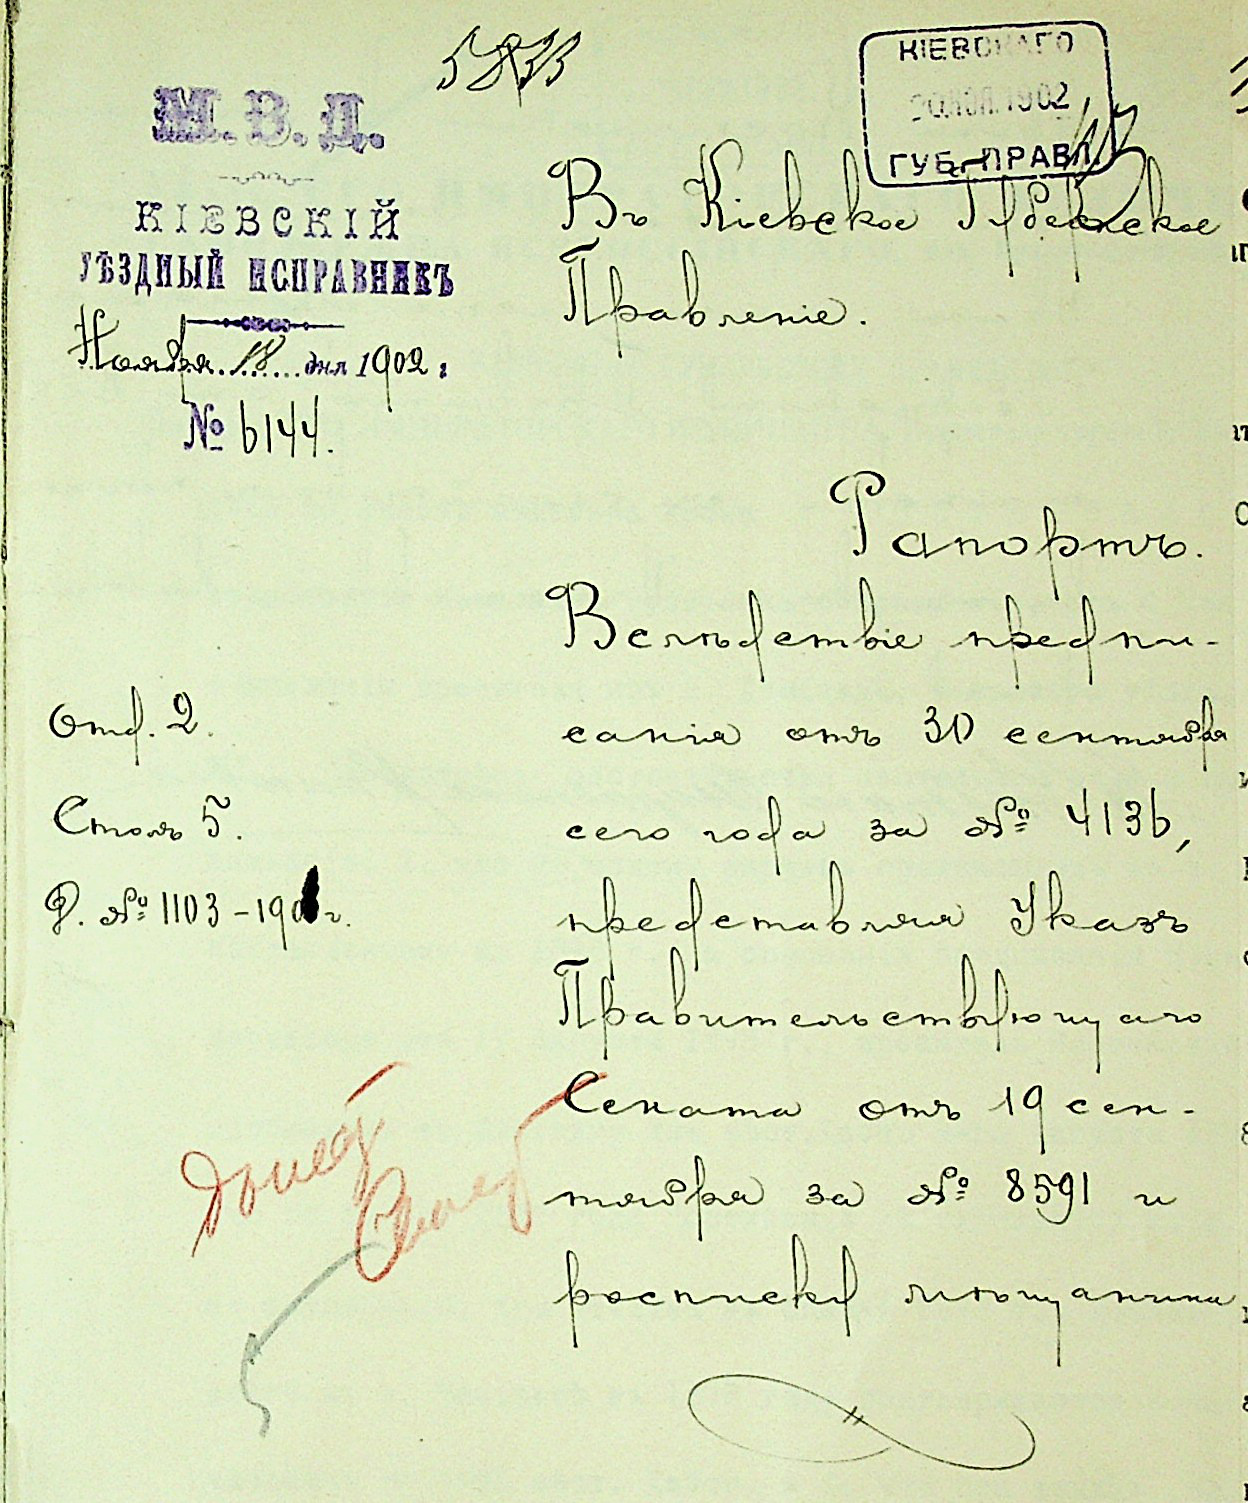 КІЕВСКАГО
1902
ГУБ. ПРАВЛ.
М. В. Д.
КІЕВСКІЙ
УѢЗДНЫЙ ИСПРАВНИКЪ
Ноября 18 дня 1902 г
№ 6144.
Въ Кіевское Губернское
Правленіе.
Рапортъ.
Отд. 2.
Столъ 5.
Д. № 1103 - 190 г.
Вслѣдствіе предпи-
санія отъ 30 сентября
сего года за № 4136,
представляя Указъ
Правительствующаго
Сената отъ 19 сен-
тября за № 8591 и
росписку мѣщанина